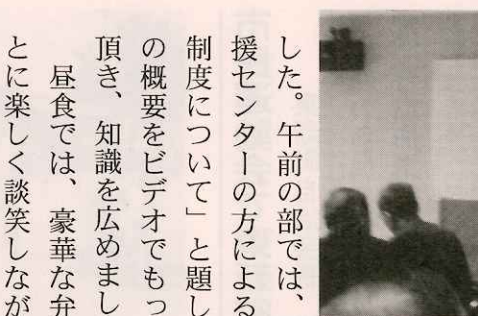 した。午前の部では、
援センターの方による
制度について」と題し
の概要をビデオでもっ
頂き、知識を広めまし
昼食では、豪華な弁
とに楽しく談笑しなが